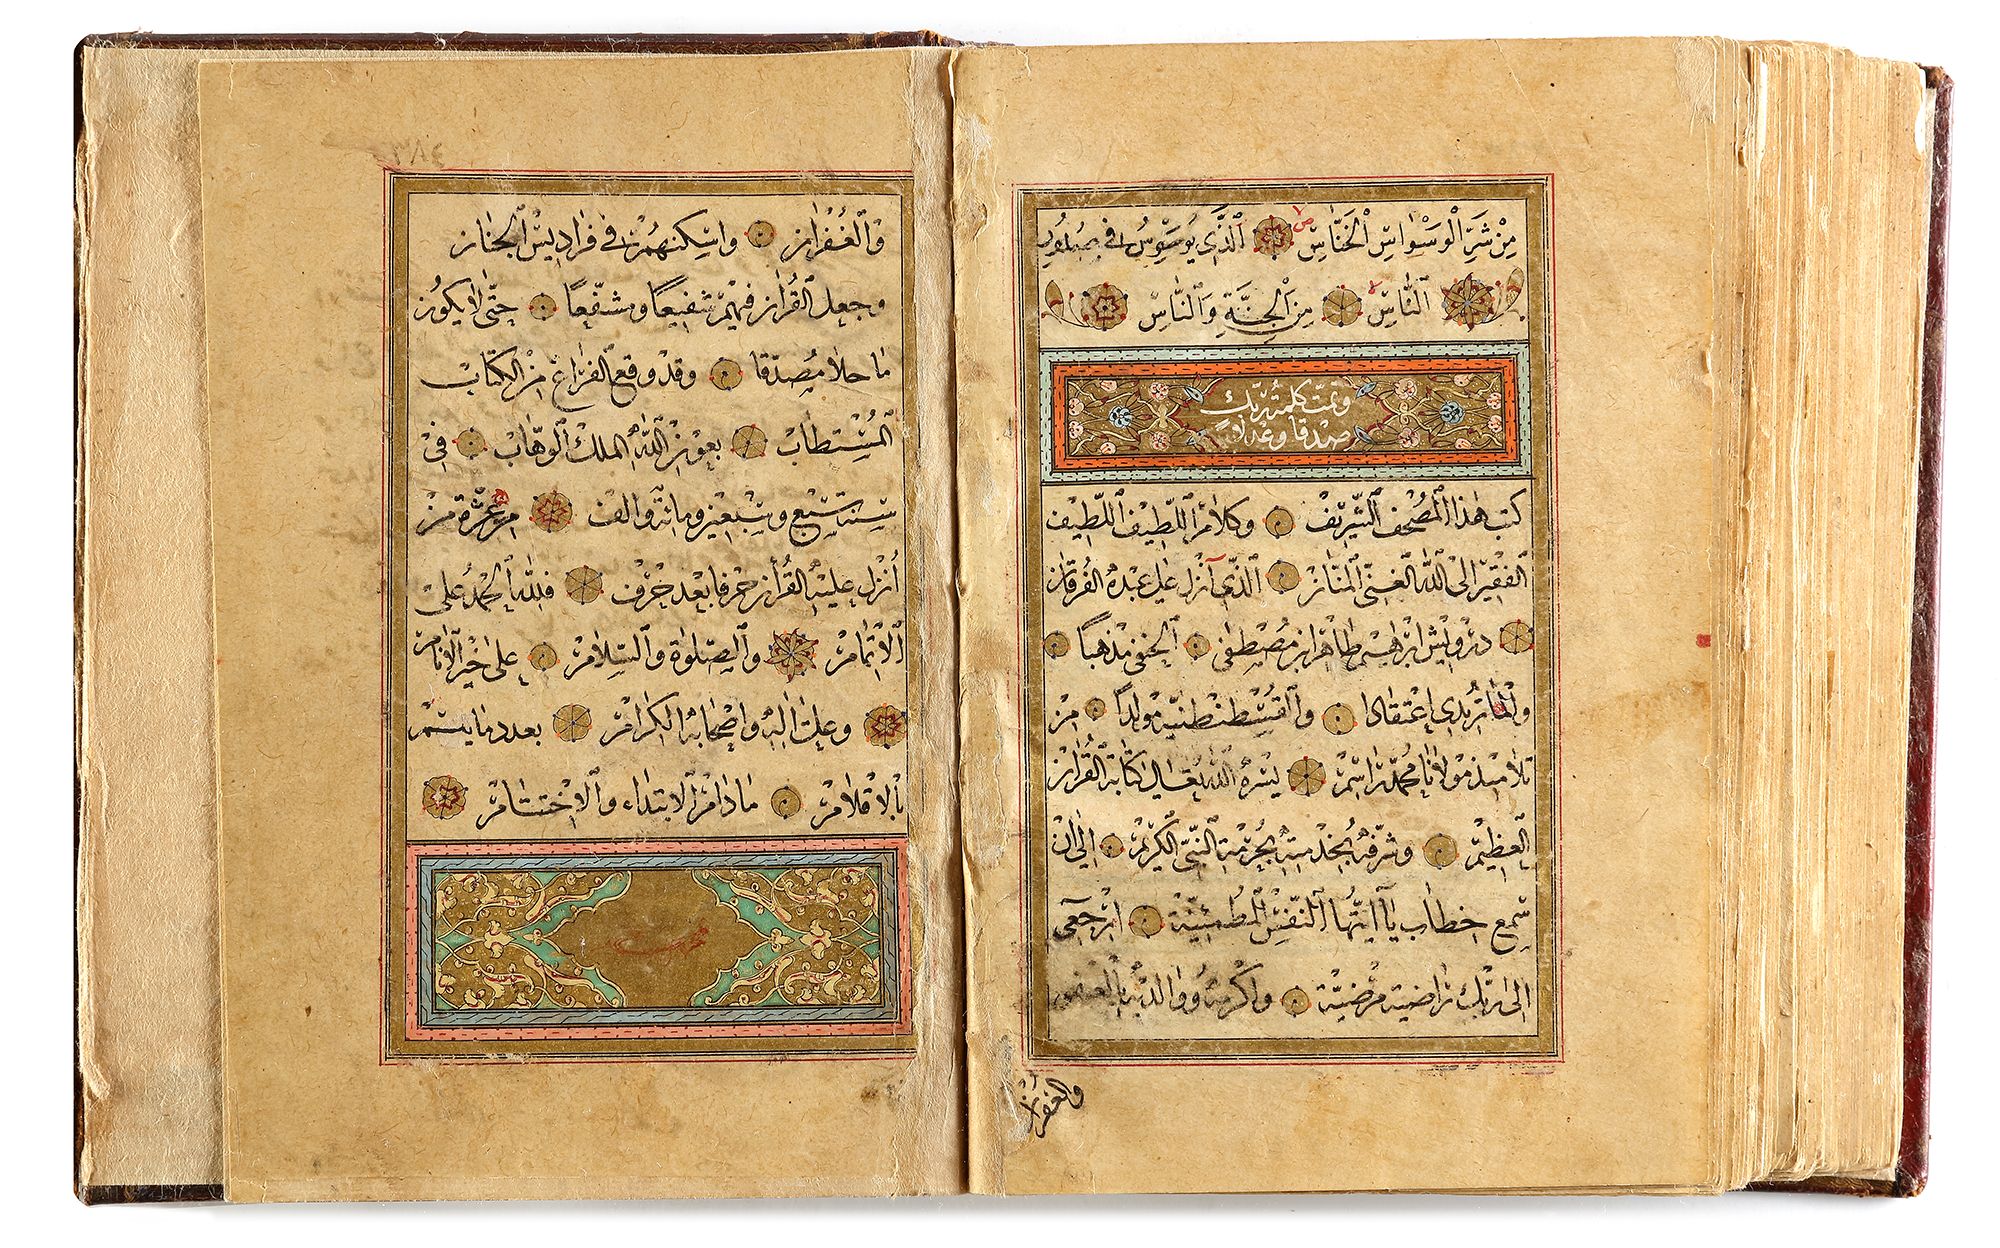 مِنْ شَرِّ الْوَسْوَاسِ الْخَنَّاسِ الَّذِي يُوَسْوِسُ فِي صُدُورِ
النَّاسِ مِنَ الْجِنَّةِ وَالنَّاسِ
وتمت كلمة ربك
صدقا وعدلا
كتب هذا المصحف الشريف وكلام اللطيف اللطيف
الفقير الى الله الغني المنان الذي انزل على عبده الفرقان
درويش ابرهيم طاهر ابن مصطفى الحنفي مذهباً
والماتريدي اعتقادا والقسطنطنية مولداً من
تلاميذ مولانا محمد راسم يسره الله تعالى كتابة القران
العظيم وشرفه بخدمته بحرمة النبي الكريم الى ان
سمع خطاب يا ايتها النفس المطمئنة ارجعي
الى ربك راضية مرضية واكرمه ووالديه بالعفو
والغفران
والغفران واسكنهم في فراديس الجنان
وجعل القران فيهم شفيعاً ومشفعاً حتى لا يكون
ما حلا مصدقا وقد وقع الفراغ من الكتاب
المستطاب بعون الله الملك الوهاب في
سنة سبع وسبعين ومائة والف من هجرة من
أنزل عليه القرأن حرفا بعد حرف فلله الحمد على
الاتمام والصلوة والسلام على خير الانام
وعلى اله واصحابه الكرام بعدد ما يتم
بالاقلام ما دام الابتداء والاختتام